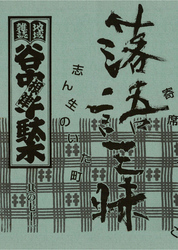 寄席
落語三昧
志ん生のいた町
地域雑誌
谷中根津千駄木